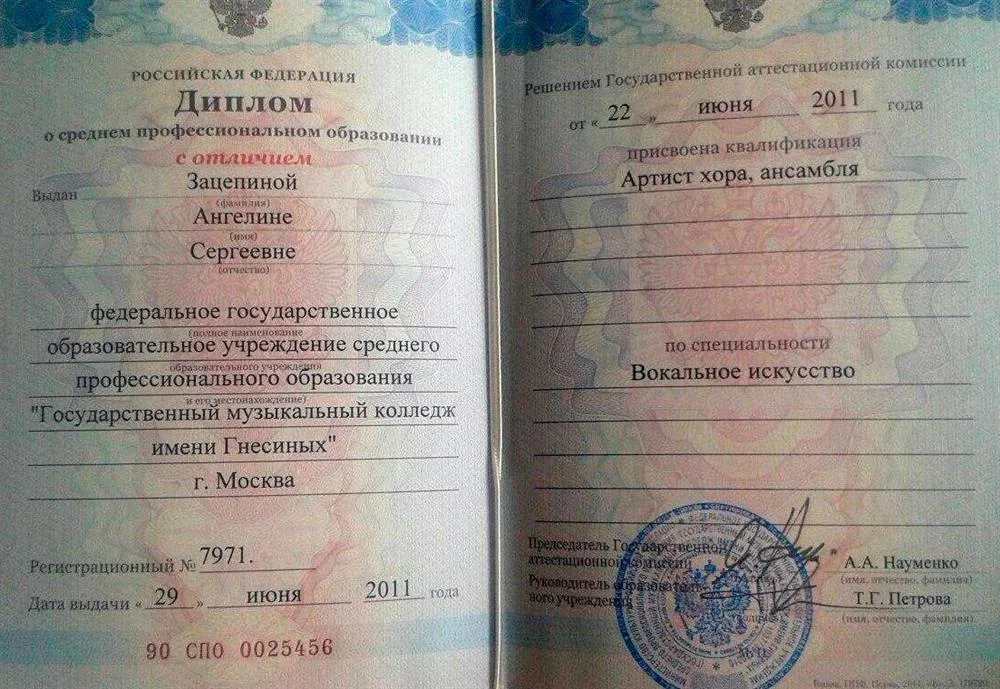 РОССИЙСКАЯ ФЕДЕРАЦИЯ
Диплом
о среднем профессиональном образовании
с отличием
Выдан Зацепиной
(фамилия)
Ангелине
(имя)
Сергеевне
(отчество)
федеральное государственное
(полное наименование
образовательное учреждение среднего
образовательного учреждения
профессионального образования
и его местонахождение)
"Государственный музыкальный колледж
имени Гнесиных"
г. Москва
Регистрационный № 7971.
Дата выдачи « 29 » июня 2011 года
90 СПО 0025456
Решением Государственной аттестационной комиссии
от « 22 » июня 2011 года
присвоена квалификация
Артист хора, ансамбля
по специальности
Вокальное искусство
Председатель Государственной
аттестационной комиссии
А.А. Науменко
(имя, отчество, фамилия)
Руководитель образователь
ного учреждения
Т.Г. Петрова
(имя, отчество, фамилия)